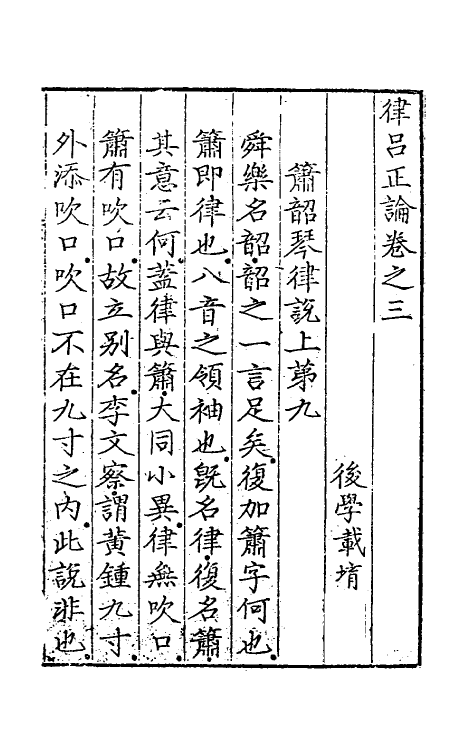 律呂正論卷之三
後學載堉
簫韶琴律說上第九
舜樂名韶韶之一言足矣復加簫字何也
簫即律也八音之領袖也既名律復名簫
其意云何蓋律與簫大同小異律無吹口
簫有吹口故立别名李文察謂黃鍾九寸
外添吹口吹口不在九寸之内此說非也